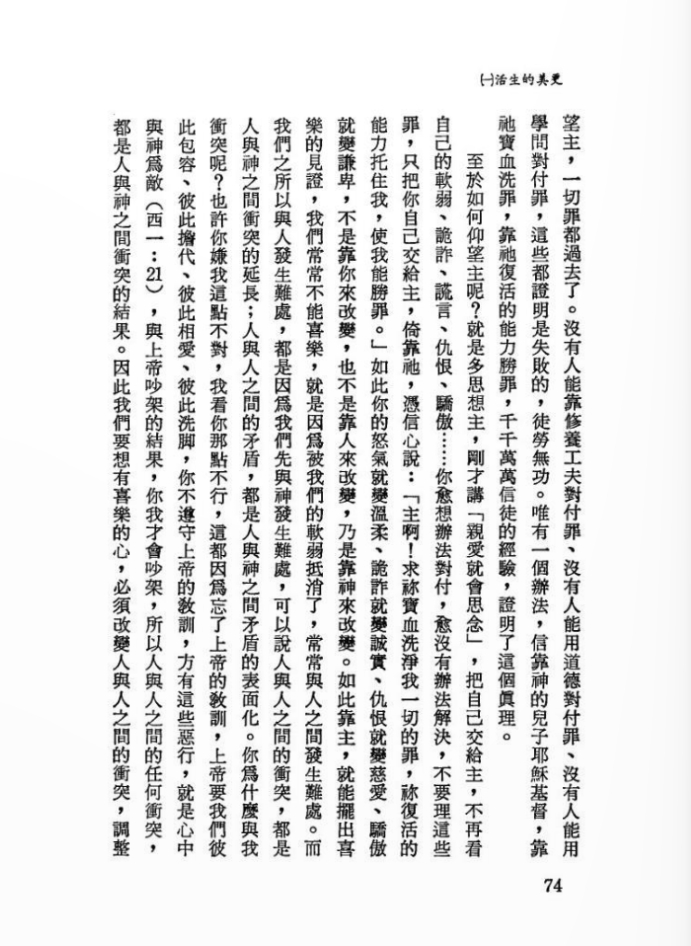 更美的生活㈠
望主，一切罪都過去了。沒有人能靠修養工夫對付罪、沒有人能用道德對付罪、沒有人能用
學問對付罪，這些都證明是失敗的，徒勞無功。唯有一個辦法，信靠神的兒子耶穌基督，靠
祂寶血洗罪，靠祂復活的能力勝罪，千千萬萬信徒的經驗，證明了這個眞理。
至於如何仰望主呢？就是多思想主，剛才講「親愛就會思念」，把自己交給主，不再看
自己的軟弱、詭詐、謊言、仇恨、驕傲……你愈想辦法對付，愈沒有辦法解決，不要理這些
罪，只把你自己交給主，倚靠祂，憑信心說：「主啊！求祢寶血洗淨我一切的罪，祢復活的
能力托住我，使我能勝罪。」如此你的怒氣就變溫柔、詭詐就變誠實、仇恨就變慈愛、驕傲
就變謙卑，不是靠你來改變，也不是靠人來改變，乃是靠神來改變。如此靠主，就能擺出喜
樂的見證，我們常常不能喜樂，就是因爲被我們的軟弱抵消了，常常與人之間發生難處。而
我們之所以與人發生難處，都是因爲我們先與神發生難處，可以說人與人之間的衝突，都是
人與神之間衝突的延長；人與人之間的矛盾，都是人與神之間矛盾的表面化。你爲什麼與我
衝突呢？也許你嫌我這點不對，我看你那點不行，這都因爲忘了上帝的教訓，上帝要我們彼
此包容、彼此擔代、彼此相愛、彼此洗脚，你不遵守上帝的教訓，方有這些惡行，就是心中
與神爲敵（西一：21），與上帝吵架的結果，你我才會吵架，所以人與人之間的任何衝突，
都是人與神之間衝突的結果。因此我們要想有喜樂的心，必須改變人與人之間的衝突，調整
74